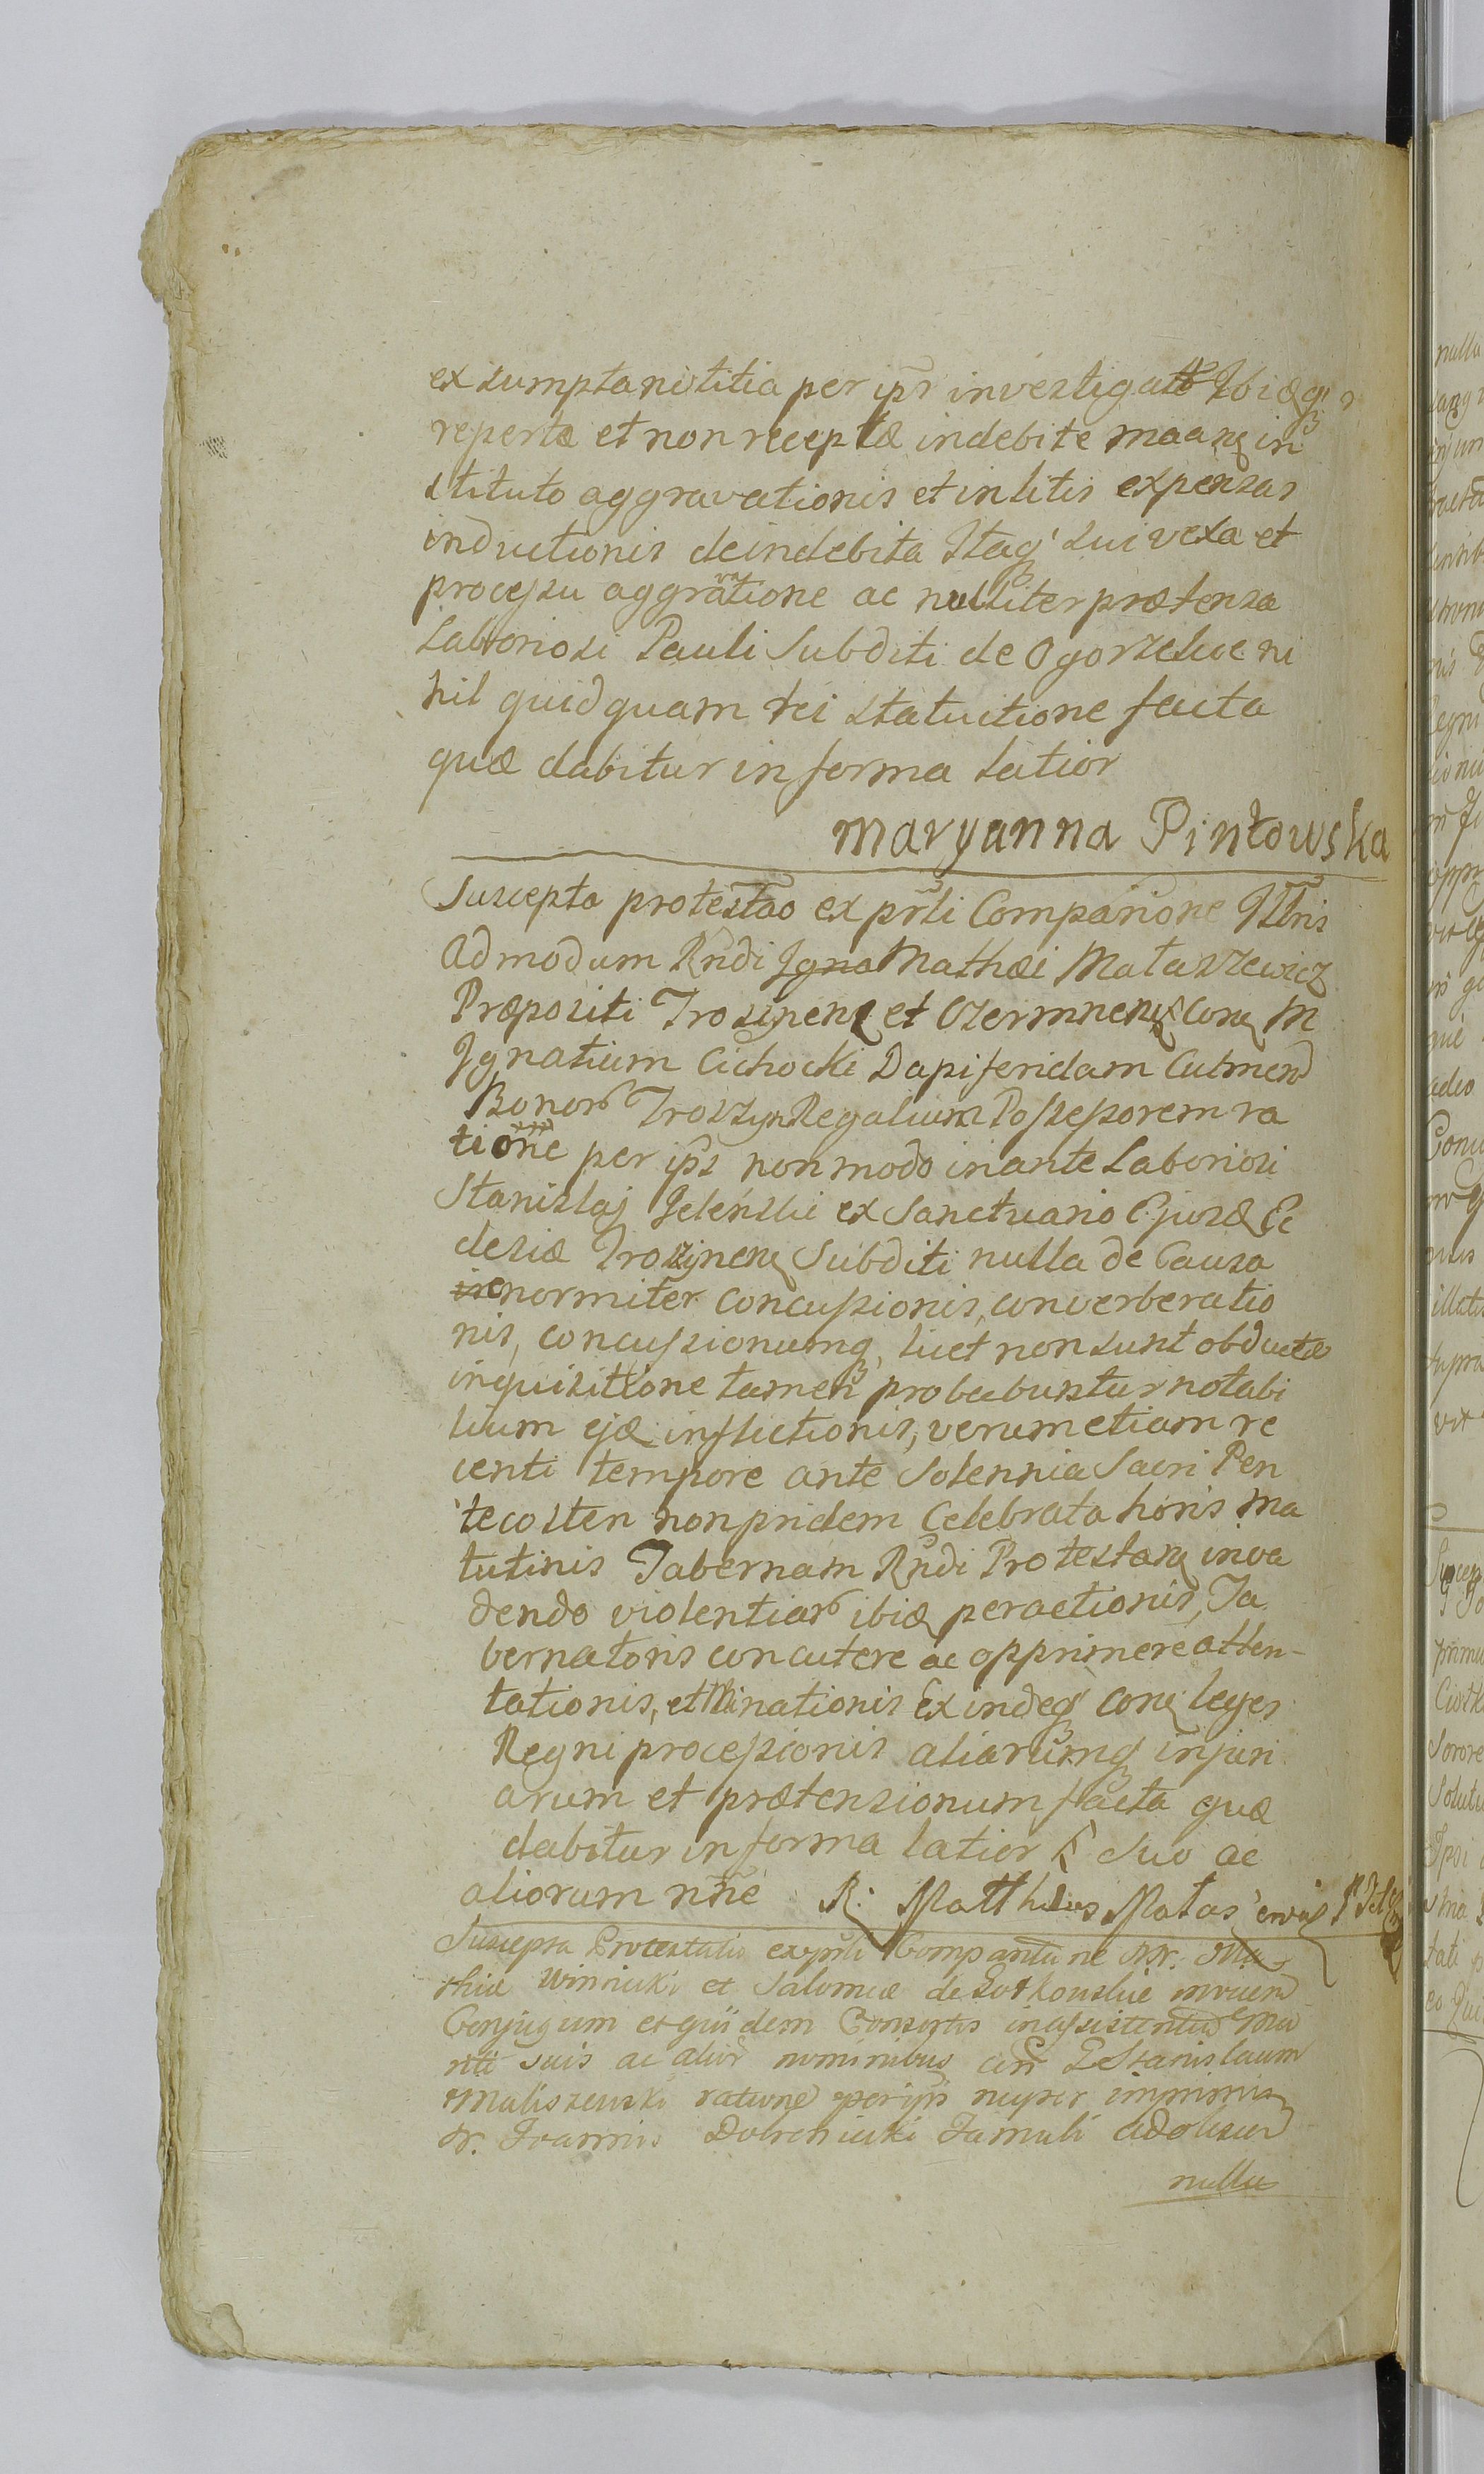 ex sumpta notitia per ipsr investigatæ Ibiqꝫ
repertæ et non receptæ indebite maanꝫ in
stituto aggravationis et in litis expensas
inductionis de indebita Itaqꝫ sui vexa et
processu aggravatione ac nulliter prætensa
Laboriosi Pauli Subditi de Ogorzelice ni
hil quidquam rei statuitione facta
quæ dabitur in forma latior
Maryanna Pintowska
Suscepta protestao ex prli Comparione Illris
Admodum Rndi Mathæi Mataszewicz
Præpositi Troszynenꝫ et Czermnenꝫ Conꝫ M
Ignatium Cichocki Dapiferidam Culmen
Bonor Troszyn Regalium Possessorem ra
tione per ips non modo in ante Laboriosi
Stanislaj Jelenskie ex Sanctuario Ejusd Ec
clesiæ Troszynenꝫ Subditi nulla de Causa
enormiter concussionis, converberatio
nis, concussionumqꝫ, licet non sunt obductæ
inquisitione tamen probabuntur notabi
lium ejd inflictionis, verum etiam re
centi tempore ante Solennia Sacri Pen
tecosten non pridem Celebrata horis ma
tutinis Tabernam Rndi Protestanꝫ inva
dendo violentiar ibid peractionis, Ta
bernatoris concutere ac opprimere atten-
tationis, et Minationis Exindeqꝫ conꝫ leges
Regni processionis aliarumqꝫ injuri
arum et prætensionum facta quæ
dabitur in forma latior Suo ac
aliorum nne R: Mattheus Matas
Suscepta Protestatio ex prli Comparitione NN. Ma
thiæ Winnicki et Salomeæ de mruen
Conjugum et quidem Consortis in assistentia Ma
riti suis ac alior nominibus cn G Stanislaum
Maliszewski ratione per ips nuper inprimis
N. Joannis Dobrchnicki Famuli adolescen
nulla